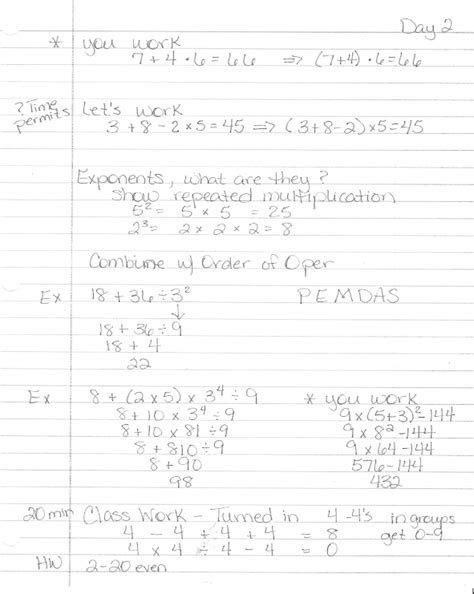 Day 2
* you work
7 + 4 • 6 = 66 ⇒ (7+4) • 6 = 66
? Time permits Let's work
3 + 8 - 2 x 5 = 45 ⇒ (3+8-2) x 5 = 45
Exponents, what are they?
Show repeated multiplication
5² = 5 x 5 = 25
2³ = 2 x 2 x 2 = 8
Combine w/ Order of Oper
Ex 18 + 36 ÷ 3² PEMDAS
↓
18 + 36 ÷ 9
18 + 4
22
Ex 8 + (2 x 5) x 3⁴ ÷ 9 * you work
8 + 10 x 3⁴ ÷ 9 9 x (5+3)² - 144
8 + 10 x 81 ÷ 9 9 x 8² - 144
8 + 810 ÷ 9 9 x 64 - 144
8 + 90 576 - 144
98 432
20 min Class Work - Turned in 4 - 4's in groups
4 - 4 ÷ 4 + 4 = 8 get 0-9
4 x 4 ÷ 4 - 4 = 0
HW 2-20 even